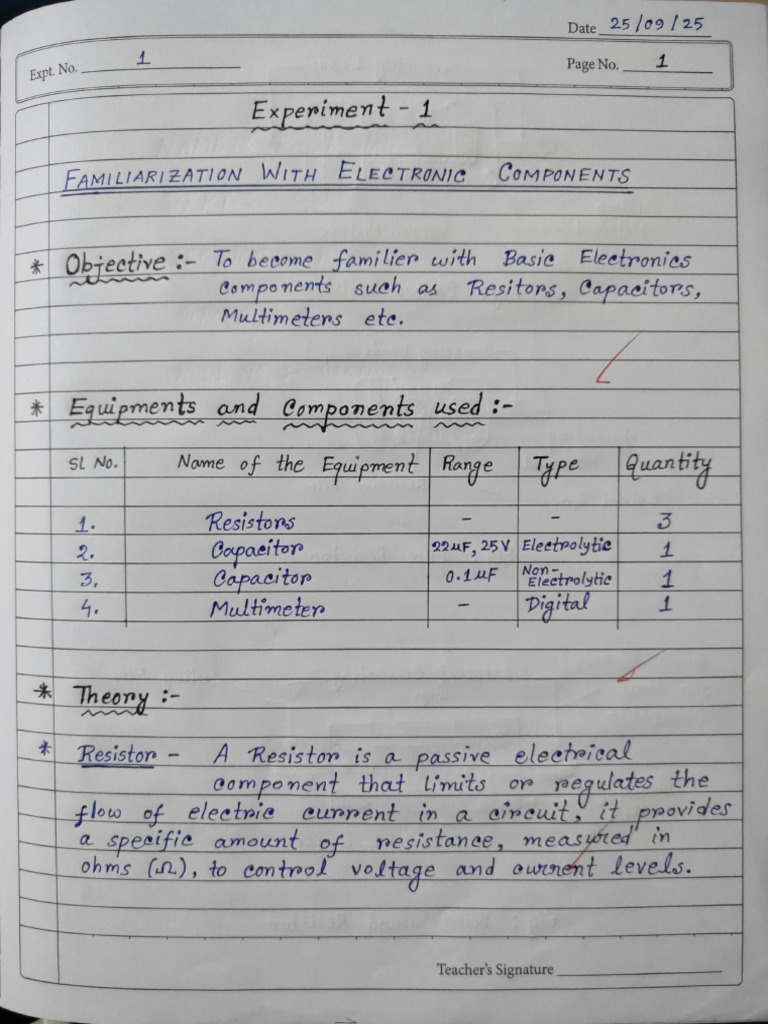 Date 25/09/25
Expt. No. 1 Page No. 1
Experiment - 1
FAMILIARIZATION WITH ELECTRONIC COMPONENTS
* Objective :- To become familier with Basic Electronics
components such as Resitors, Capacitors,
Multimeters etc.
* Equipments and Components used :-
SL No. Name of the Equipment Range Type Quantity
1. Resistors - - 3
2. Capacitor 22µF, 25V Electrolytic 1
3. Capacitor 0.1µF Non-Electrolytic 1
4. Multimeter - Digital 1
* Theory :-
* Resistor - A Resistor is a passive electrical
component that limits or regulates the
flow of electric current in a circuit, it provides
a specific amount of resistance, measured in
ohms (Ω), to control voltage and current levels.
Teacher's Signature